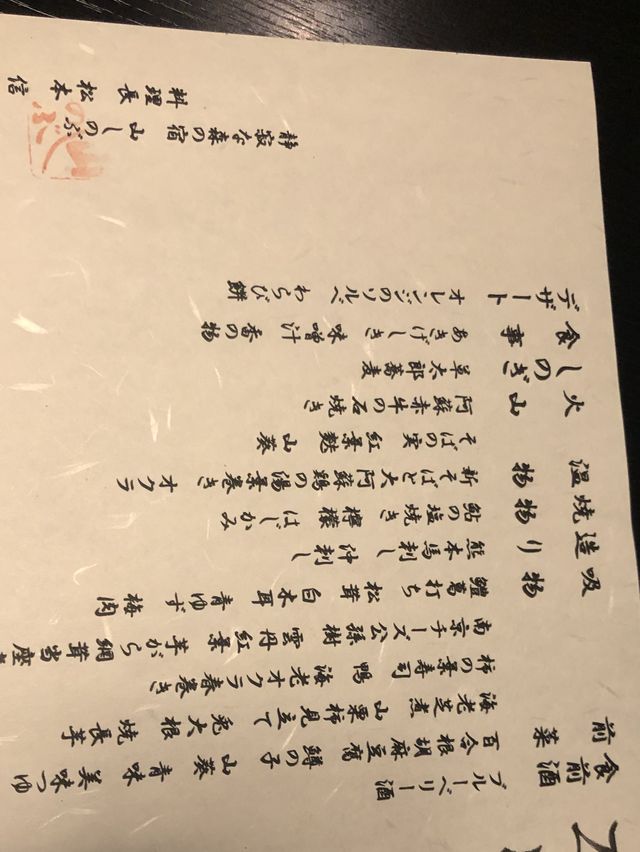 食前酒 ブルーベリー酒
前菜 百合根胡麻豆腐 鱒の子 山葵 青味 美味つゆ
海老芝煮 山栗柿見立て 兎大根 焼長芋
柿の葉寿司 鴨 海老オクラ春巻き
南京チーズ 公孫樹 雲丹 紅葉 芋がら 網茸当座
吸物 鱧葛打ち 松茸 白木耳 青ゆず 梅肉
造り 熊本馬刺し 沖刺し
焼物 鮎の塩焼き 檸檬 はじかみ
温物 新そばと大阿蘇鶏の湯葉巻き オクラ
そばの実 紅葉麩 山葵
火山 阿蘇赤牛の石焼き
しのぎ 草太郎蕎麦
食事 あきげしき 味噌汁 香の物
デザート オレンジのソルベ わらび餅
静寂な森の宿 山しのぶ
料理長 松本 信